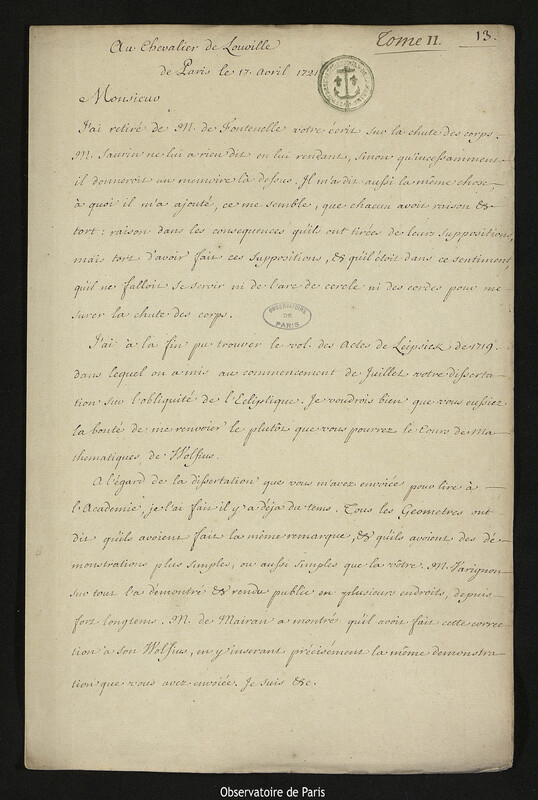 Tome II. 13.
Au Chevalier de Louville
de Paris le 17. avril 1721
Monsieur
J'ai retiré de M. de Fontenelle votre écrit sur la chute des corps.
M. Saurin ne lui a rien dit en lui rendant, sinon qu'incessamment
il donneroit un memoire là dessus. Il m'a dit aussi la même chose
à quoi il m'a ajouté, ce me semble, que chacun avoit raison &
tort: raison dans les consequences qu'ils ont tirées de leurs suppositions,
mais tort d'avoir fait ces suppositions, & qu'il étoit dans ce sentiment,
qu'il ne falloit se servir ni de l'arc de cercle ni des cordes pour me-
surer la chute des corps.
OBSERVATOIRE
DE
PARIS
J'ai à la fin pu trouver le vol. des Actes de Leipsick de 1719.
dans lequel on a mis au commencement de Juillet votre disserta-
tion sur l'obliquité de l'Ecliptique. Je voudrois bien que vous eussiez
la bonté de me renvoier le plutôt que vous pourrez le Cours de Ma-
thematiques de Wolfius.
A l'égard de la dissertation que vous m'avez envoiée pour lire à
l'Academie, je l'ai fait il y a déja du tems. Tous les Geometres ont
dit qu'ils avoient fait la même remarque, & qu'ils avoient des dé-
monstrations plus simples, ou aussi simples que la vôtre. M. Varignon
sur tout l'a démontré & rendu public en plusieurs endroits, depuis
fort longtems. M. de Mairan a montré qu'il avoit fait cette correc-
tion a son Wolfius, en y inserant précisément la même demonstra-
tion que vous avez envoiée. Je suis &c.
Observatoire de Paris